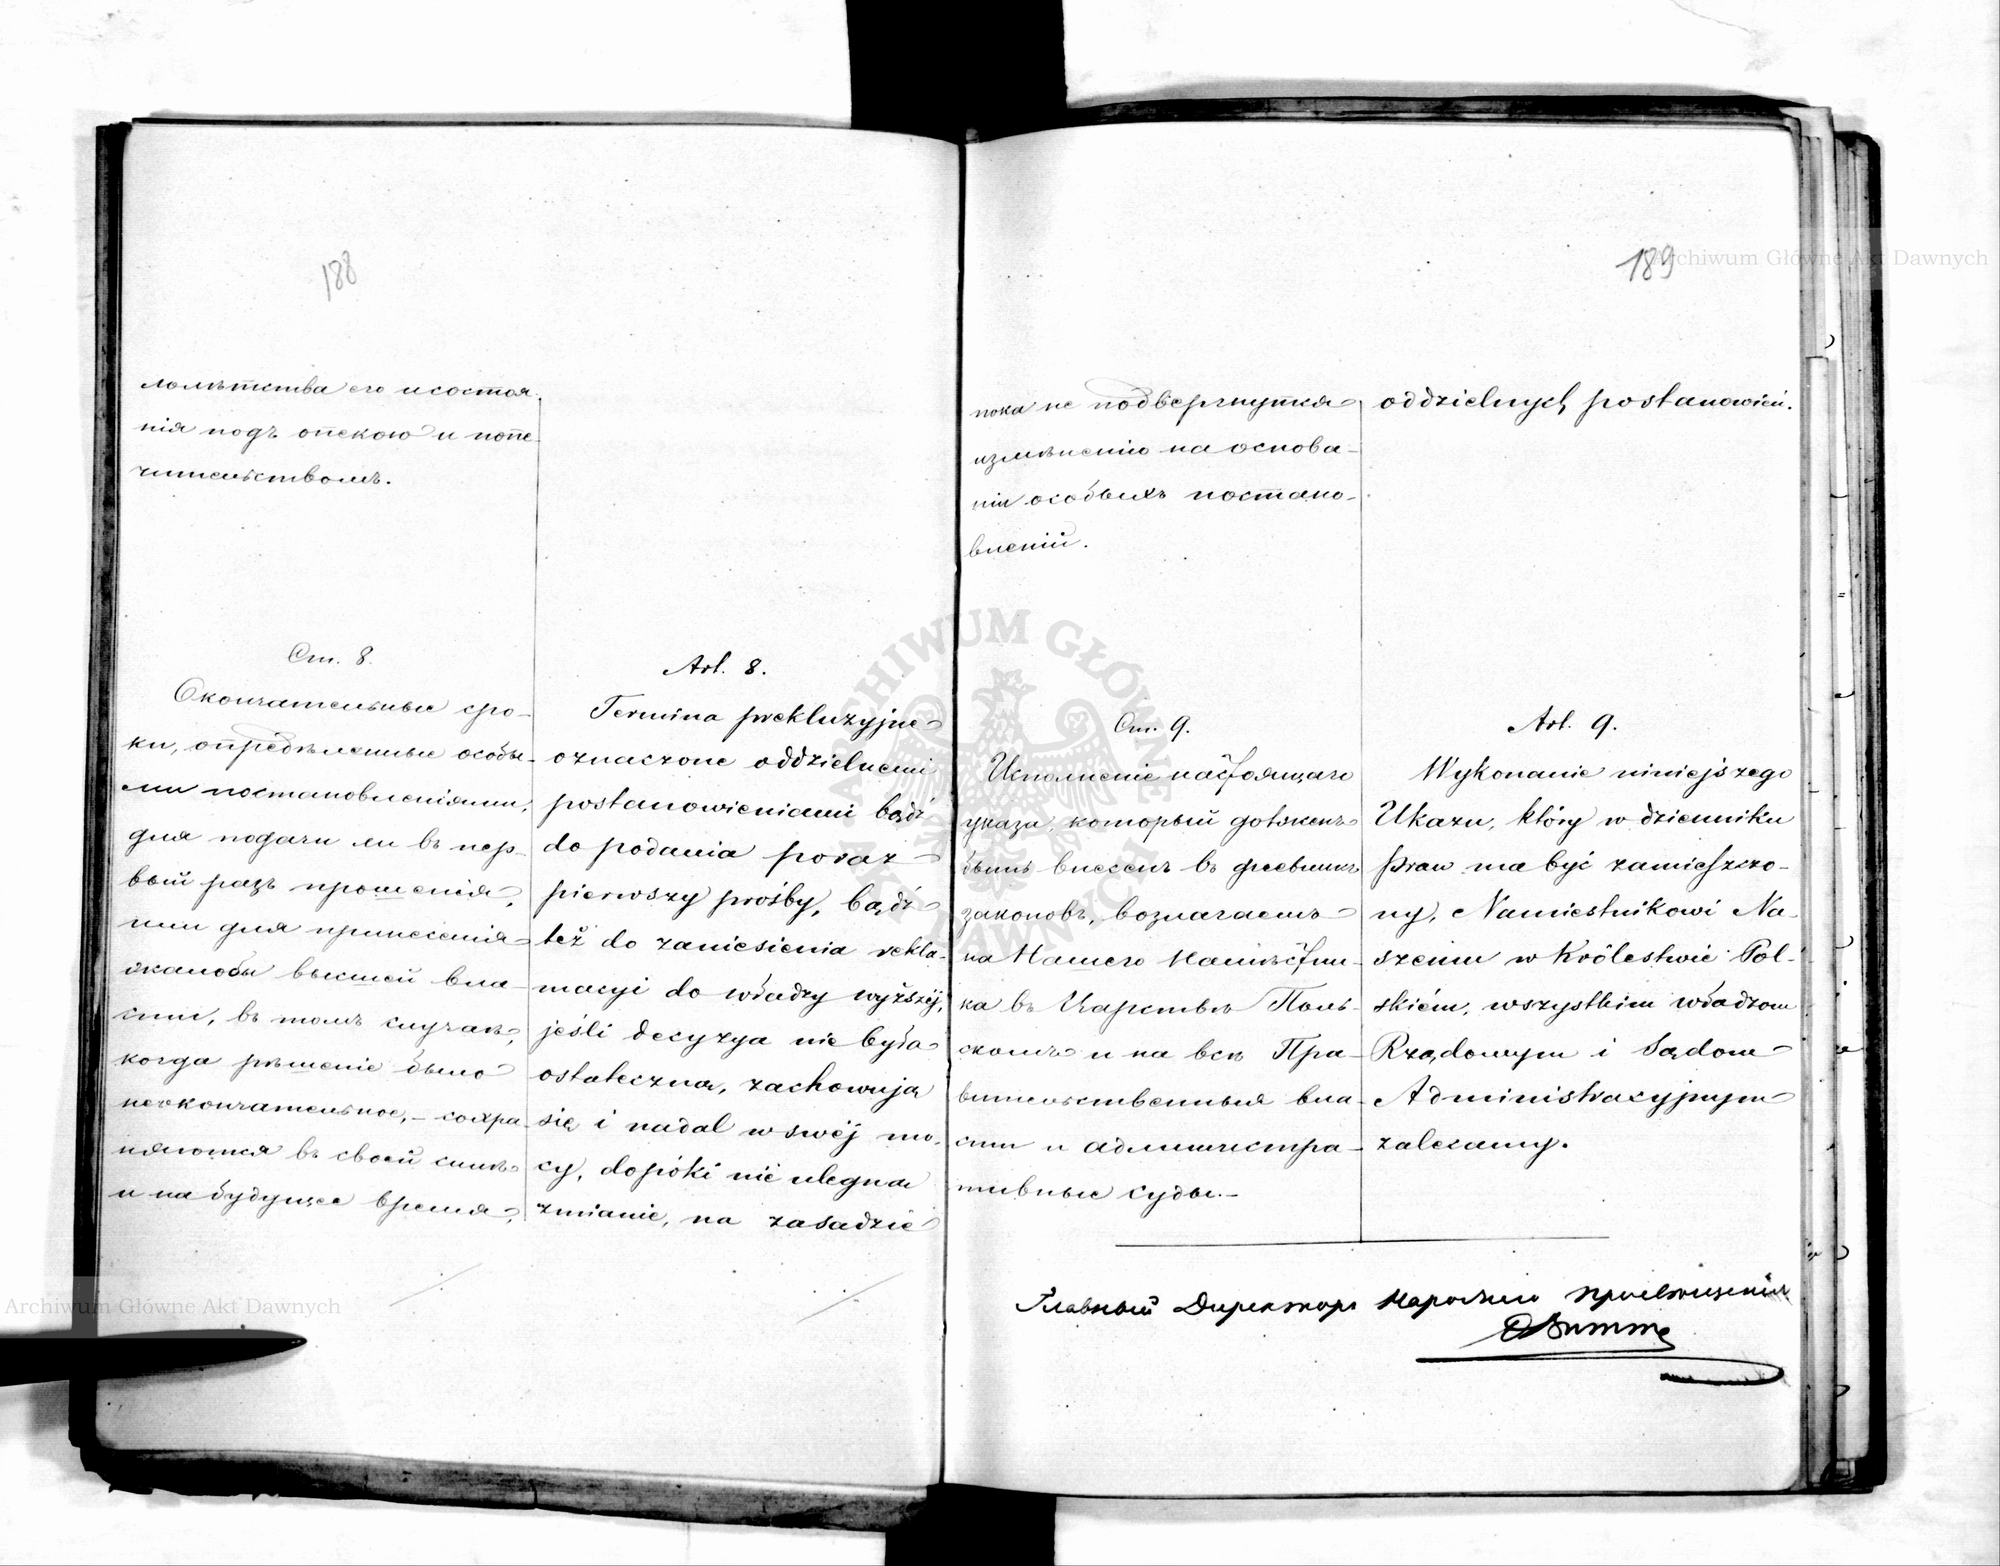 188
лолѣтства его и состоя-
нія подъ опекою и попе-
чительствомъ.
Ст. 8.
Окончательные сро-
ки, опредѣленные особы-
ми постановленіями,
для подачи ли въ пер-
вый разъ прошенія,
или для принесенія
жалобы высшей вла-
сти, въ томъ случаѣ,
когда рѣшеніе было
неокончательное, – сохра-
няются въ своей силѣ
и на будущее время,
Art. 8.
Termina prekluzyjne
oznaczone oddzielnemi
postanowieniami bądź
do podania poraz
pierwszy prośby, bądź
też do zaniesienia rekla-
macyi do władzy wyższéj,
jeśli decyzya nie była
ostateczna, zachowują
się i nadal w swéj mo-
cy, dopóki nie ulegną
zmianie, na zasadzie
189
пока не подвергнутся
измѣненію на основа-
ніи особыхъ постано-
вленій.
oddzielnych postanowień.
Ст. 9.
Исполненіе настоящаго
указа, который долженъ
быть внесенъ въ дневникъ
законовъ, возлагаемъ
на Нашего Намѣстни-
ка въ Царствѣ Поль-
скомъ и на всѣ Пра-
вительственныя вла-
сти и администра-
тивные суды. –
Art. 9.
Wykonanie niniejszego
Ukazu, który w dzienniku
praw ma być zamieszczo-
ny, Namiestnikowi Na-
szemu w Królestwie Pol-
skiém, wszystkim władzom
Rządowym i Sądom
Administracyjnym
zalecamy.
Главный Директоръ Народнаго Просвѣщенія
Ѳ Витте
Archiwum Główne Akt Dawnych
Archiwum Główne Akt Dawnych
ARCHIWUM GŁÓWNE AKT DAWNYCH